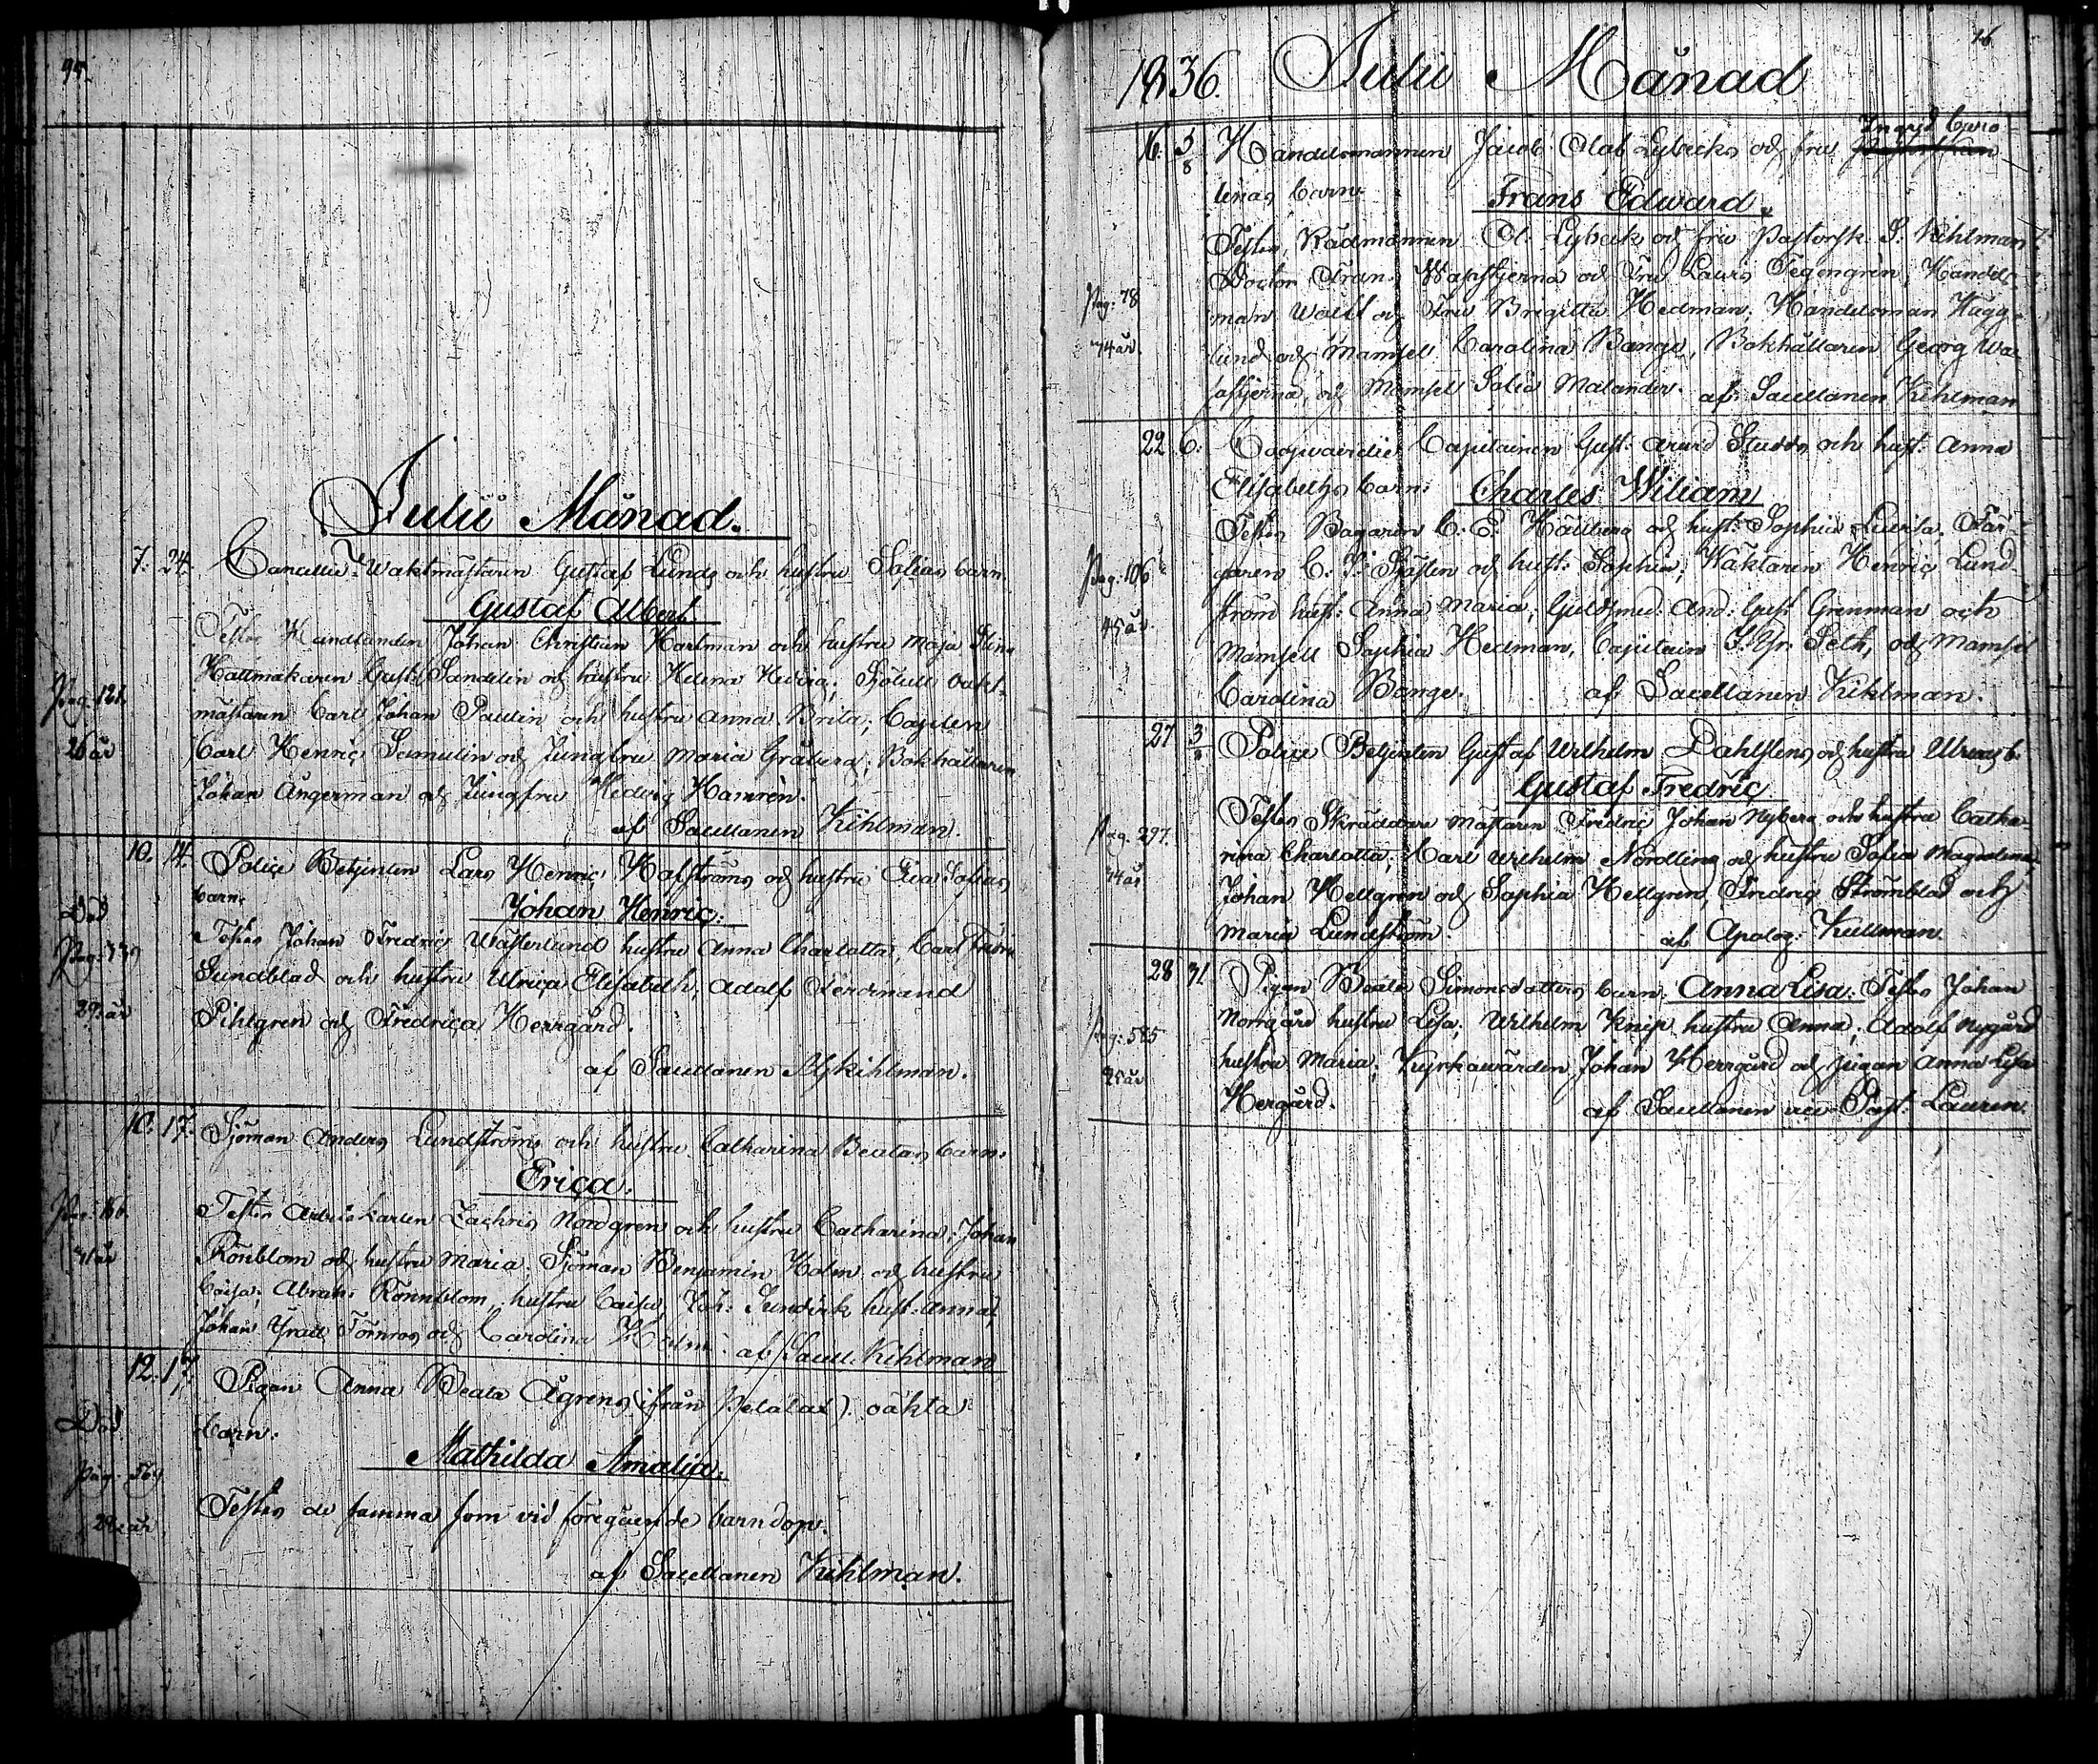 95.
Julii Månad.
7. 24. Cancellie Waktmästaren Gustaf Lunds och hustru Sofias barn.
Gustaf Albert
Testes Handlanden Johan Christian Hartman och hustru Maja Stina
Pag. 121. Hattmakaren Gust. Sandelin och hustru Helena Hedvig; Sjötull vakt-
mästaren Carl Johan Paulin och hustru Anna Brita; Capiten
26 år Carl Henric Samulin och Jungfru Maria Gråberg; Bokhållaren
Johan Ångerman och Jungfru Hedvig Hamrèn.
af Sacellanen Kihlman.
10. 14. Police Betjenten Lars Henric Hafströms och hustru Eva Sofias
Död barn. Johan Henric.
Testes Johan Fredric Westerlund hustru Anna Charlotta, Carl
Sundblad och hustru Ulrica Elisabeth, Adolf Ferdinand
29 år Pihlgren och Fredrica Herrgård.
af Sacellanen Kihlman.
10. 17. Sjöman Anders Lundströms och hustru Catharina Beatas barn.
Erica.
Testes Zachris Nordgren och hustru Catharina; Johan
Rönblom och hustru Maria; Sjöman Benjamin Holm och hustru
Caisa; Abrah: Rönnblom, hustru Caisa, Joh: hust: Anna;
Johan Törnros och Carolina Holm. af Sacell. Kihlman
12. 17. Pigan Anna Beata Ågrens (ifrån Petalax) oäkta
Död barn.
Mathilda Amalia.
Pag. 569
Testes de samma som vid föregående barndop.
29 år
af Sacellanen Kihlman.
1836. Julii Månad
16
16. 3/8 Handelsmannen Jacob Olof Lybecks och fru Ingrid Caro-
linas barn. Frans Edward.
Testes, Rådmannen Ol. Lybeck och fru Pastorsk. S. Kihlman
Doctor Fran: Wasastjerna och Fru Lauis Tegengrèn; Handels-
Pag: 78 man Wolff och Fru Brigitta Hedman; Handelsman Hägg-
74 år. lund och Mamsel Carolina Bange, Bokhållaren Georg Wa-
sastjerna, och Mamsel Sofia Malander. af Sacellanen Kihlman
22 6. Coopvaerdie Capitainen Gust: Arvid Studds och hust: Anna
Elisabeths barn: Charles Wiliam
Testes Bagaren C: E: Hällberg och hust: Sophia Lovisa, Fär-
Pag: 106 garen C: J: och hust: Sophia; Waktaren Henric Lund-
45 år. ström hust: Anna Maria; Guldsmed: And: Gust Grenman och
Mamsell Sophia Hedman, Capitain Seth, och Mamsel
Carolina Bange. af Sacellanen Kihlman.
27 3/8 Police Betjenten Gustaf Wilhelm Dahlstens och hustru Ulricas b.
Gustaf Fredric
Testes Skräddare Mästaren Fredric Johan Nyberg och hustru Catha-
Pag. 297. rina Charlotta; Carl Wilhelm Nordling och hustru Sofia Magdalena;
74 år Johan Hellgren och Sophia Hellgren, Fredric Strömblad och
Maria Lundström. af Apolog: Kullman.
28 31. Pigan Beata Simonsdotters barn. Anna Lisa. Testes Johan
Pag: 585 Norrgård hustru Lisa; Wilhelm Knip hustru Anna; Adolf Nygård
hustru Maria; Kyrkowärden Johan Herrgård och pigan Anna Lisa
Hergård. af Sacellanen Past: Lauren.